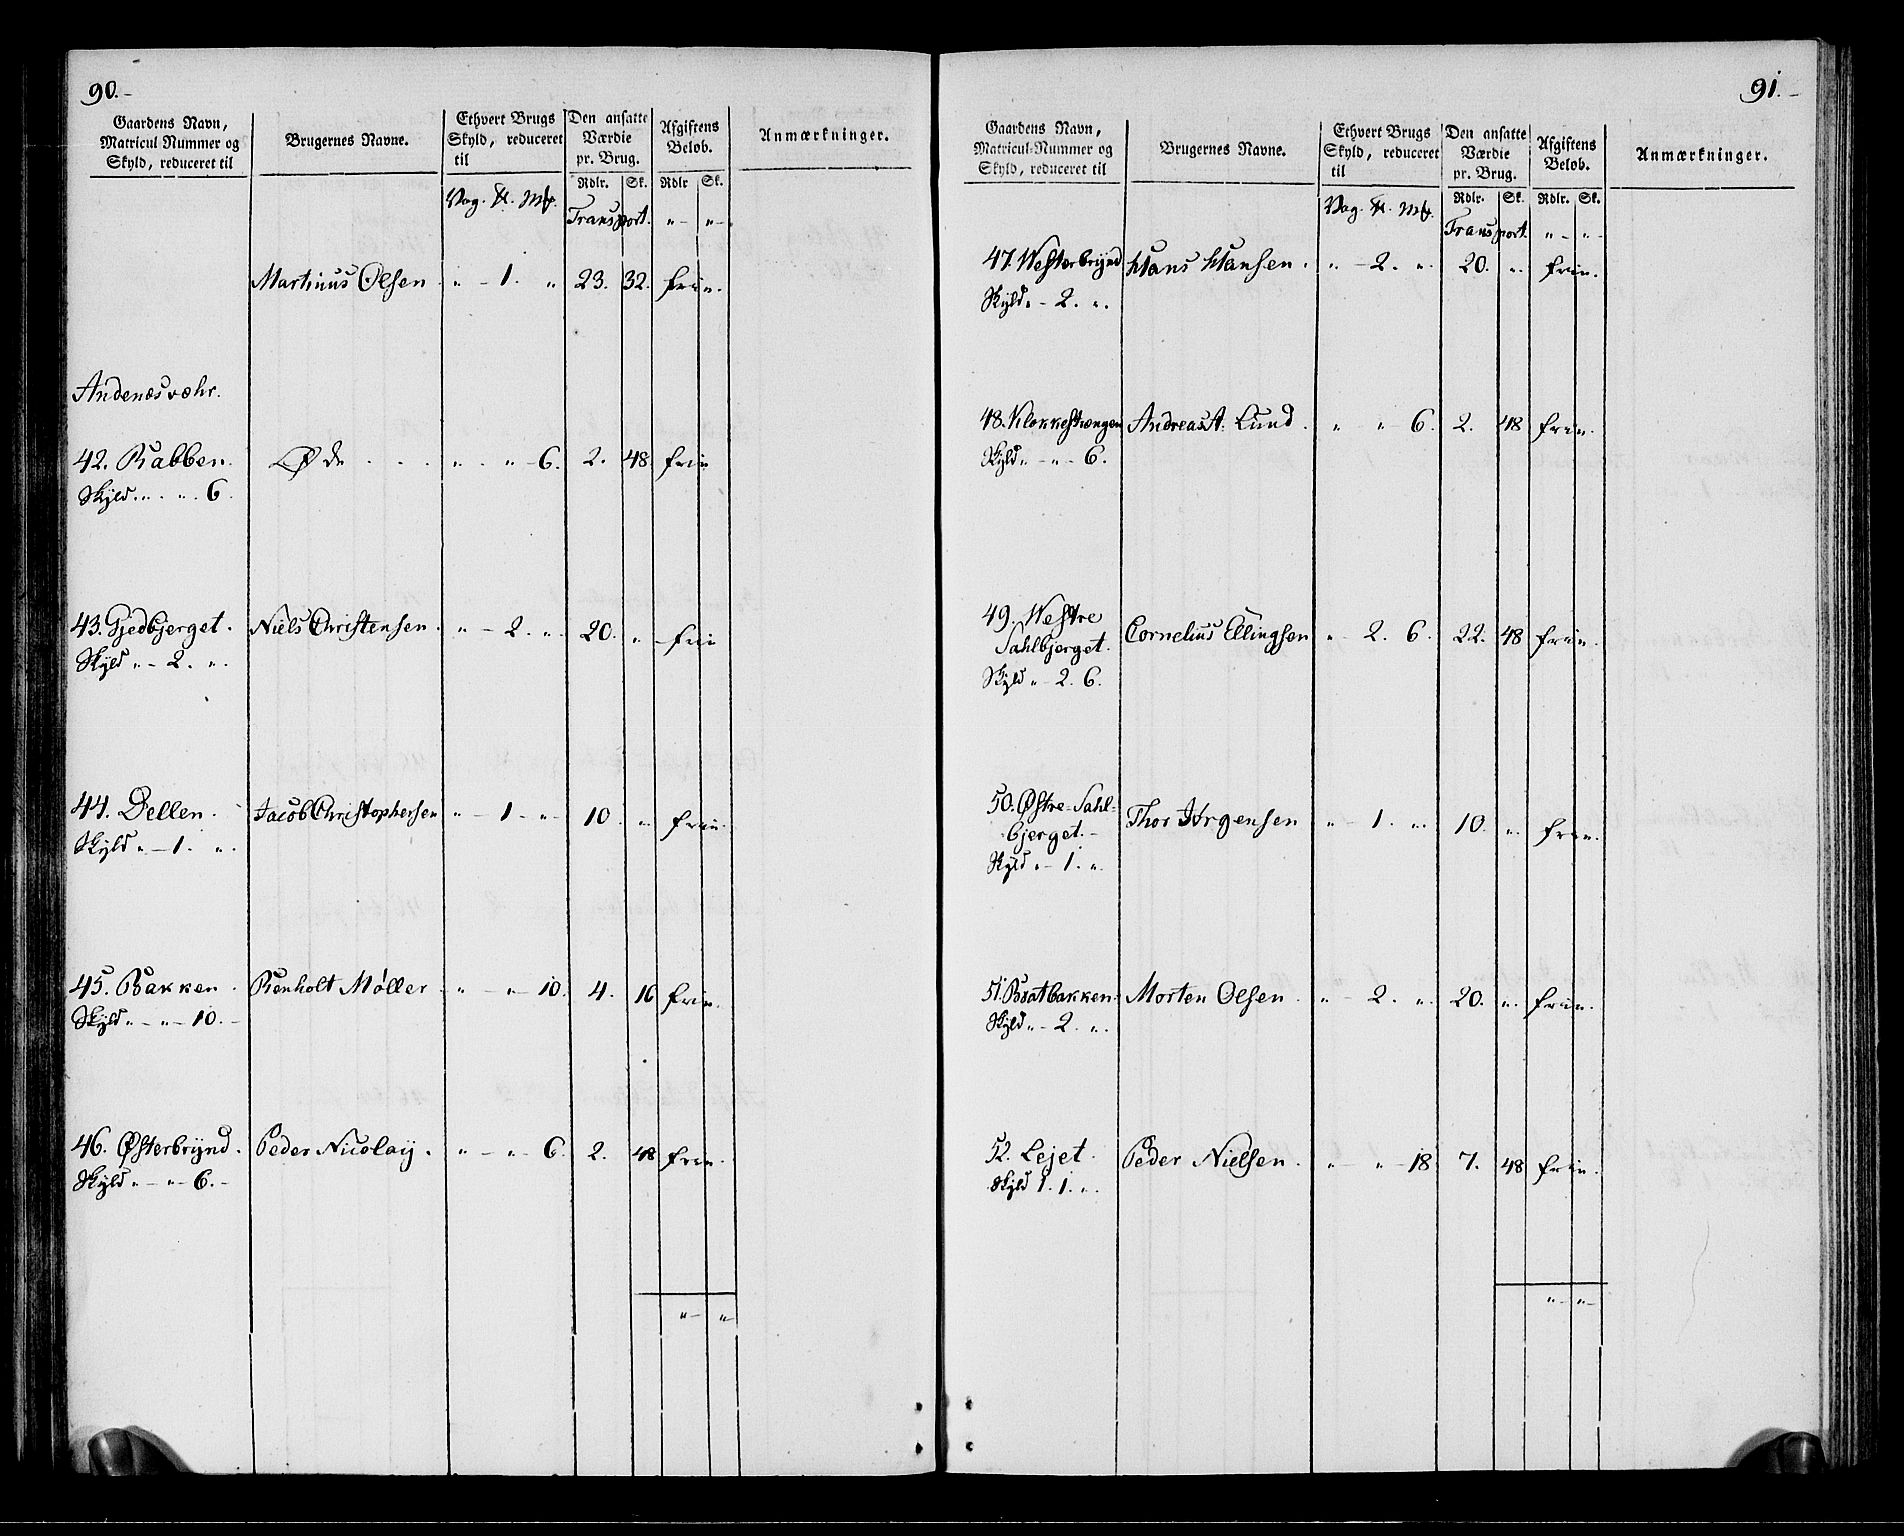 90.-
Gaardens Navn,
Matricul Nummer og
Skyld, reduceret til
Brugernes Navne.
Ethvert Brugs
Skyld, reduceret
til
Den ansatte
Værdie
pr. Brug.
Afgiftens
Beløb.
Anmærkninger.
Rdlr. Sk. Rdlr Sk.
Vog. ℔. Mk.
Transport. " - " -
Martinus Olsen. " - 1. " 23. 32. frie.
Andenæsvæhr.
42. Rabben. Øde . . . " . " - 6. 2. 48. frie
Skyld. " . " . 6.
43. Gjedbjerget. Niels Christensen. " - 2. " . 20. " - frie
Skyld " - 2. " .
44. Dellen. Jacob Christophersen " - 1 . " . 10. " frie.
Skyld " - 1. " .
45. Bakken. Renholt Møller. " - " - 10. 4. 16 frie.
Skyld " - " - 10. -
46. Østerbrÿnd. Peder Nicolaÿ. " - " - 6. 2. 48 frie.
Skyld " - " - 6. -
" - " -
91. -
Gaardens Navn,
Matricul-Nummer og
Skyld, reduceret til
Brugernes Navne.
Ethvert Brugs
Skyld, reduceret
til
Den ansatte
Værdie
pr. Brug.
Afgiftens
Beløb.
Anmærkninger.
Rdlr. Sk. Rdlr. Sk.
Vog. ℔. Mk.
Transport. " - " -
47. Westerbrÿnd Hans Hansen. " - 2. " . 20. " . frie.
Skyld " - 2. " .
48. Klokkestrængen Andreas A. Lund. " - " - 6. 2. 48 frie.
Skyld " - " - 6.
49. Westre
Sahlbjerget. Cornelius Ellingsen " - 2. 6. 22. 48 frie.
Skyld " - 2. 6.
50. Østre-Sahl-
bjerget. - Thor Jørgensen " - 1. " . 10. " . frie.
Skyld " - 1. " .
51. Bratbakken. Morten Olsen. " - 2. " . 20. " . frie.
Skyld " - 2. " .
52. Lejet. Peder Nielsen. " - " - 18 7. 48 frie.
Skyld 1. 1. " .
" - " -